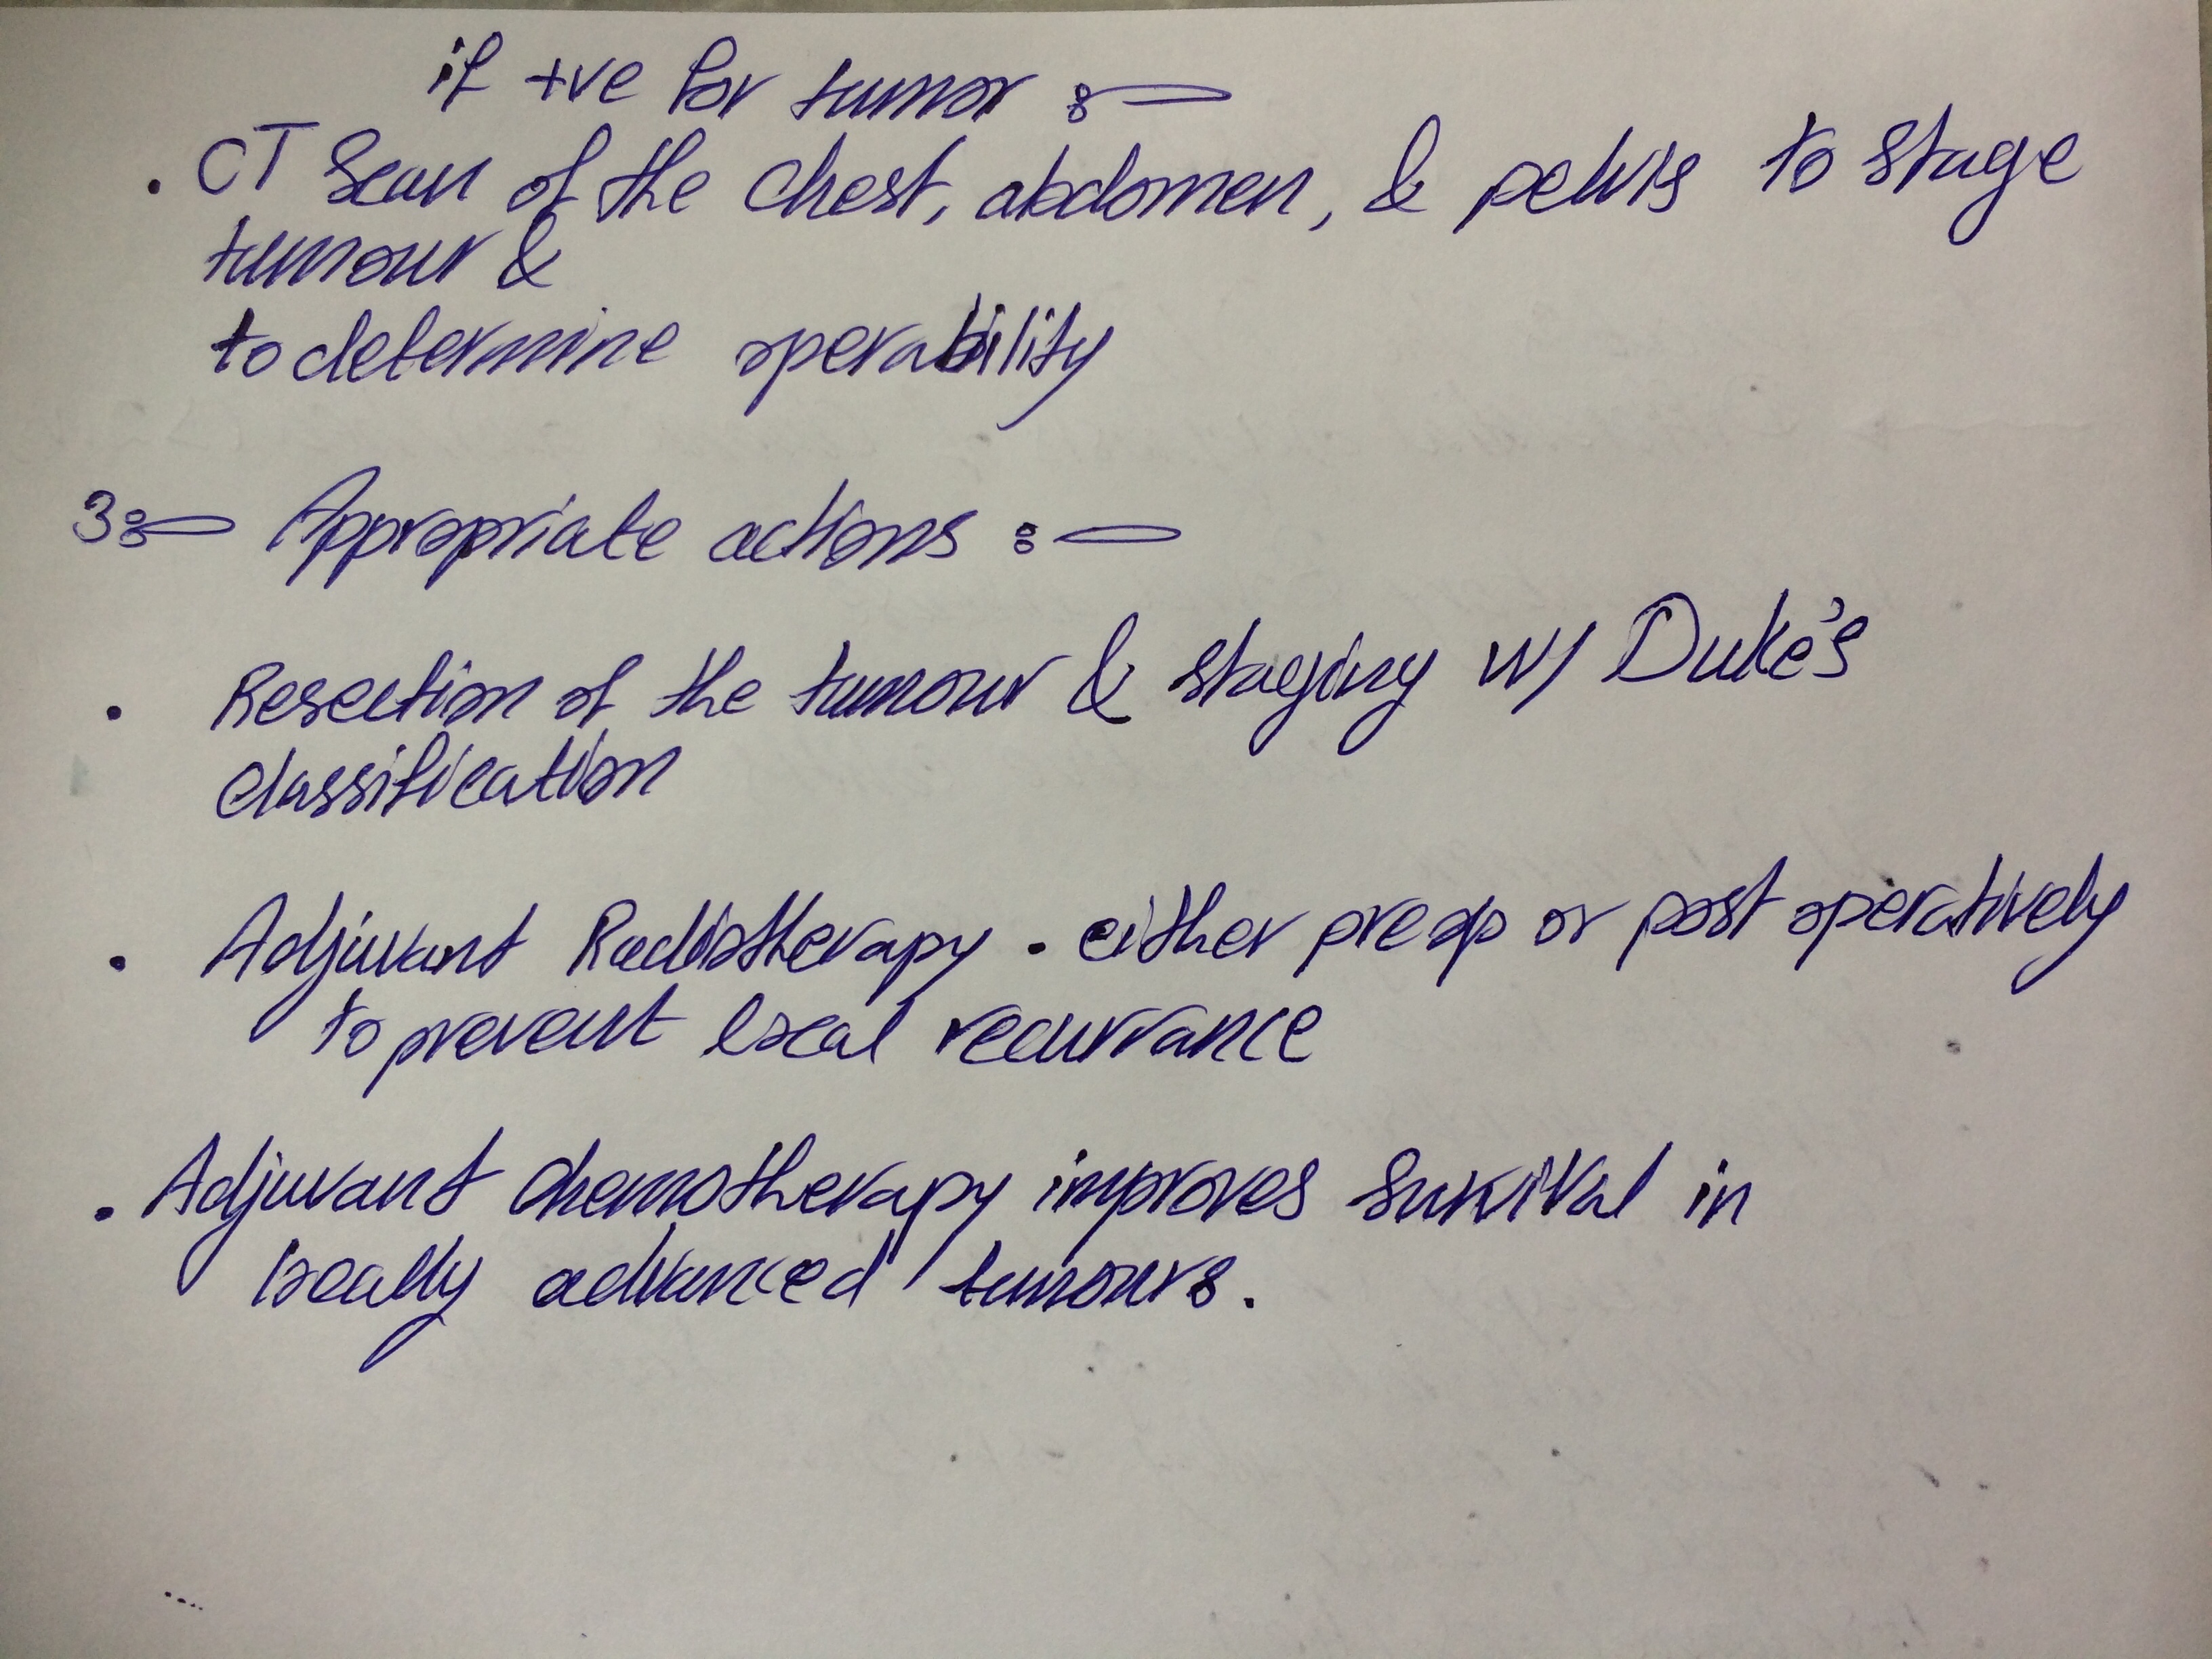 if +ve for tumor :-
. CT Scan of the chest, abdomen, & pelvis to stage
tumour &
to determine operability
3:- Appropriate actions :-
. Resection of the tumour & staging w/ Duke's
classification
. Adjuvant Radiotherapy . either preop or post operatively
to prevent local recurrance
. Adjuvant chemotherapy improves survival in
locally advanced tumours.